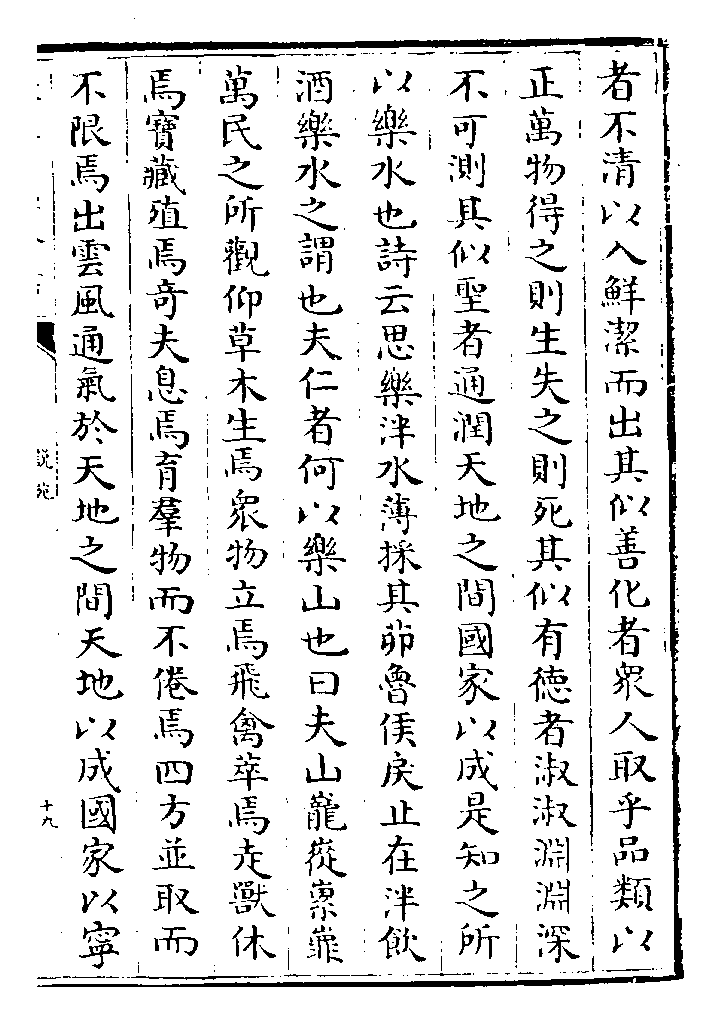 者不清以入鮮潔而出其似善化者衆人取乎品類以
正萬物得之則生失之則死其似有德者淑淑淵淵深
不可測其似聖者通潤天地之間國家以成是知之所
以樂水也詩云思樂泮水薄採其茆魯侯戾止在泮飲
酒樂水之謂也夫仁者何以樂山也曰夫山巃嵷
萬民之所觀仰草木生焉衆物立焉飛禽萃焉走獸休
焉寶藏殖焉奇夫息焉育羣物而不倦焉四方並取而
不限焉出雲風通氣於天地之間天地以成國家以寧
說苑
十九